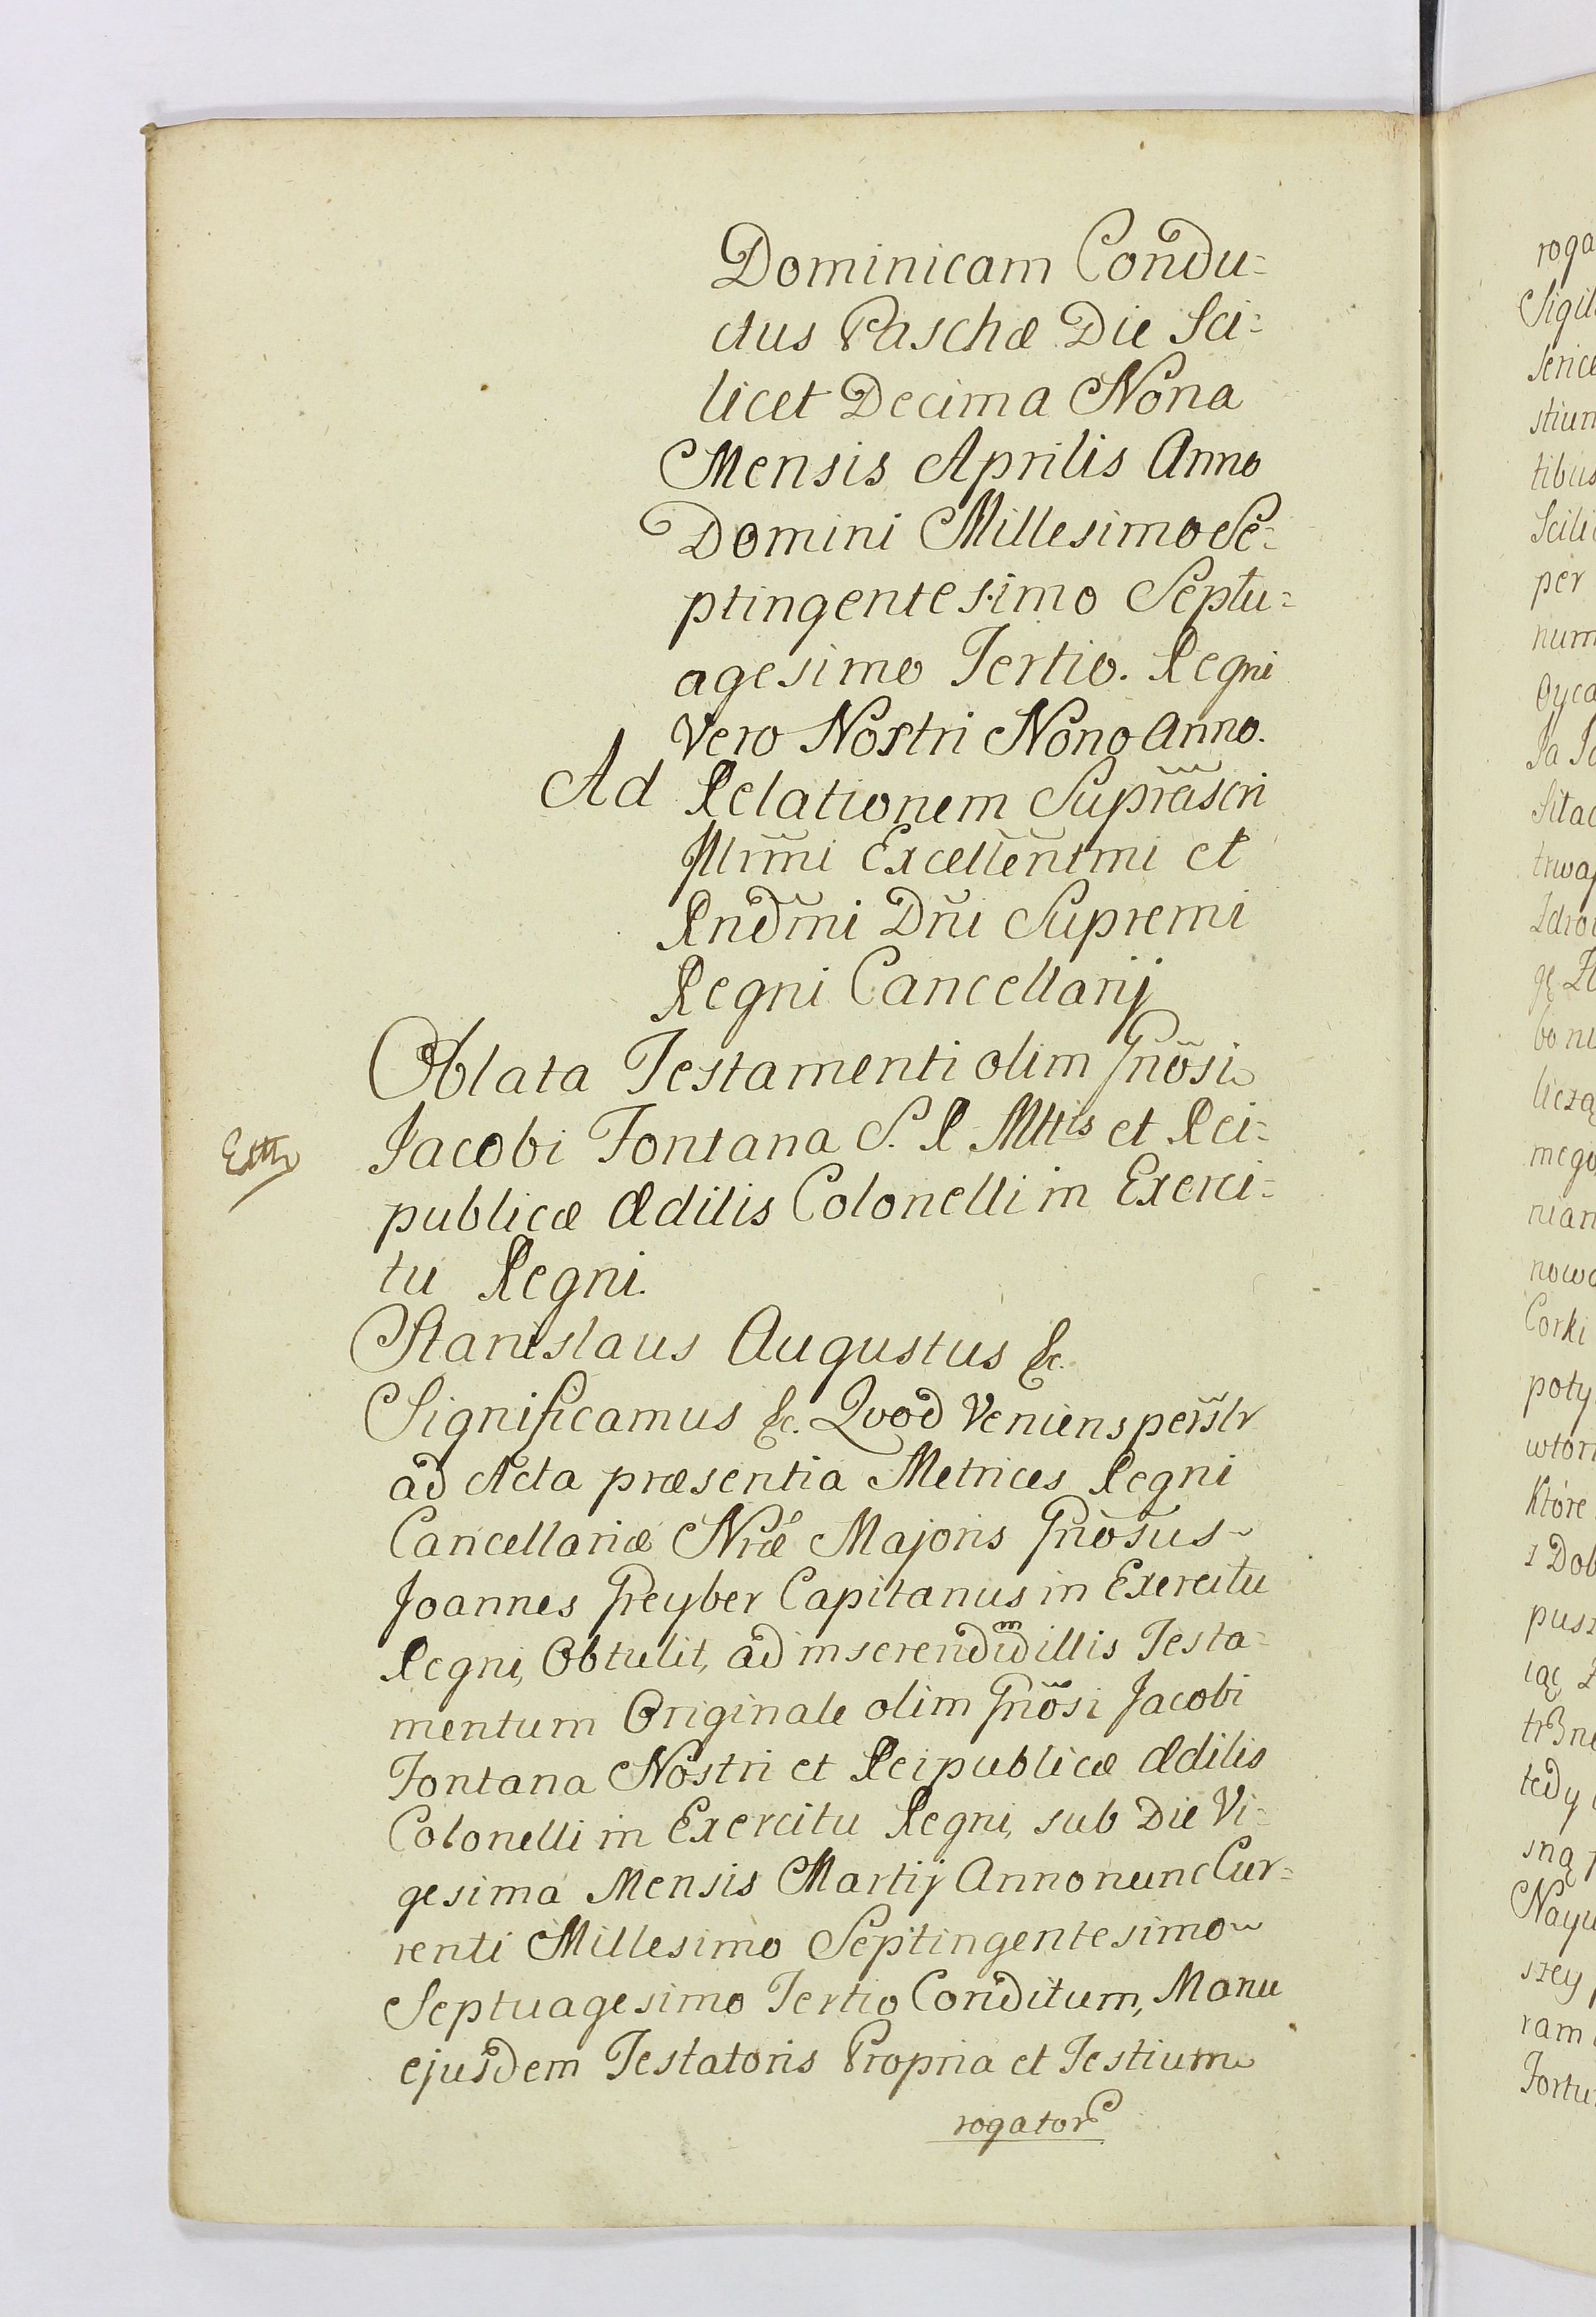 Dominicam Condu=
ctus Paschæ Die Sci=
licet Decima Nona
Mensis Aprilis Anno
Domini Millesimo Se=
ptingentesimo Septu=
agesimo Tertio. Regni
Vero Nostri Nono Anno.
Ad Relationem Suprascri
Illrmi Excellentmi et
Rndmi Dni Supremi
Regni Cancellarij
Oblata Testamenti olim Gnosi
Jacobi Fontana S. R. Mttis et Rei=
publicæ Ædilis Colonelli in Exerci=
tu Regni.
Stanislaus Augustus &c.
Significamus &c. Quod Veniens perslr
ad Acta præsentia Metrices Regni
Cancellariæ Nræ Majoris Gnosus
Joannes Greyber Capitanus in Exercitu
Regni, Obtulit, ad inserendum illis Testa=
mentum Originale olim Gnosi Jacobi
Fontana Nostri et Reipublicæ Ædilis
Colonelli in Exercitu Regni, sub Die Vi=
gesima Mensis Martij Anno nunc Cur=
renti Millesimo Septingentesimo
Septuagesimo Tertio Conditum, Manu
ejusdem Testatoris Propria et Testium
rogator
roga
Sigil
serice
stium
tibus
Scili
per
num
Oyca
Ja Ja
bo ni
licza
mego
nian
nowo
Corki
poty
wtor
Które
z Dob
pusz
tedy
sną
Nayu
szey
ram
Fortu